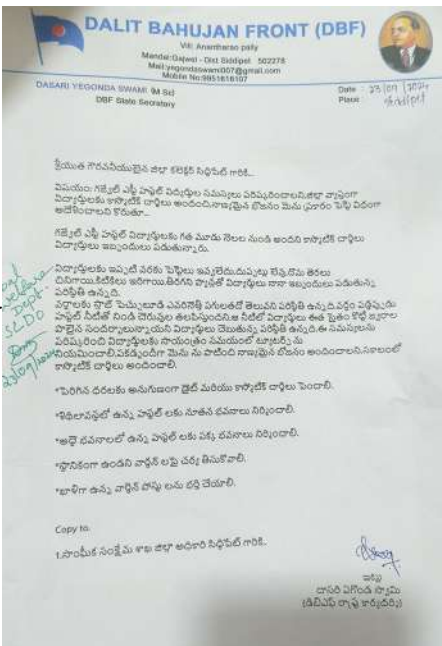 DALIT BAHUJAN FRONT (DBF)
Vill: Anantharao pally
Mandal:Gajwel - Dist Siddipet 502278
Mail:yegondaswami007@gmail.com
Mobile No:9951616107
DASARI YEGONDA SWAMI (M Sc)
DBF State Secretary
Date : 23/09/2024
Place siddipet
శ్రీయుత గౌరవనీయులైన జిల్లా కలెక్టర్ సిద్దిపేట్ గారికి...
విషయం: గజ్వేల్ ఎస్సీ హస్టల్ విద్యార్థుల సమస్యలు పరిష్కరించాలని,జిల్లా వ్యాప్తంగా
విద్యార్థులకు కాస్మొటిక్ చార్జీలు అందించి,నాణ్యమైన భోజనం మెను ప్రకారం పెట్టే విధంగా
ఆదేశించాలని కోరుతూ...
గజ్వేల్ ఎస్సీ హస్టల్ విద్యార్థులకు గత మూడు నెలల నుండి అందని కాస్మొటిక్ చార్జీలు
విద్యార్థులు ఇబ్బందులు పడుతున్నారు.
విద్యార్థులకు ఇప్పటి వరకు పెట్టెలు ఇవ్వలేదు,దుప్పట్లు లేవు,దోమ తెరలు
చినిగాయి,కిటికీలు ఇరిగాయి,తిరగని ఫ్యాన్లతో విద్యార్థులు నానా ఇబ్బందులు పడుతున్న
పరిస్థితి ఉన్నది.
వర్షాలకు స్లాబ్ పెచ్చులూడి ఎవరినెత్తి పగులతదో తెలువని పరిస్థితి ఉన్నది.వర్షం పడ్డప్పుడు
హస్టల్ నీటితో నిండి చెరువుల తలపిస్తుందని,ఆ నీటిలో విద్యార్థులు ఈత సైతం కొట్టి జ్వరాల
పాలైన సందర్భాలున్నాయని విద్యార్థులు చెబుతున్న పరిస్థితి ఉన్నది.ఈ సమస్యలను
పరిష్కరించి విద్యార్థులకు సాయంత్రం సమయంలో ట్యూటర్స్ ను
నియమించాలి.పకడ్బందీగా మెను ను పాటించి నాణ్యమైన భోజనం అందించాలని,సకాలంలో
కాస్మొటిక్ చార్జీలు అందించాలి.
*పెరిగిన ధరలకు అనుగుణంగా డైట్ మరియు కాస్మొటిక్ చార్జీలు పెంచాలి.
*శిథిలావస్థలో ఉన్న హస్టల్ లకు నూతన భవనాలు నిర్మించాలి.
*అద్దె భవనాలలో ఉన్న హస్టల్ లకు పక్క భవనాలు నిర్మించాలి.
*స్థానికంగా ఉండని వార్డెన్ లపై చర్య తీసుకోవాలి.
*ఖాళీగా ఉన్న వార్డెన్ పోస్టు లను భర్తీ చేయాలి.
Copy to.
1.సాంఘీక సంక్షేమ శాఖ జిల్లా అధికారి సిద్దిపేట్ గారికి.
ఇట్లు
దాసరి ఏగొండ స్వామి
(డిబిఎఫ్ రాష్ట్ర కార్యదర్శి)
Dept.
SCDO
23/09/2024